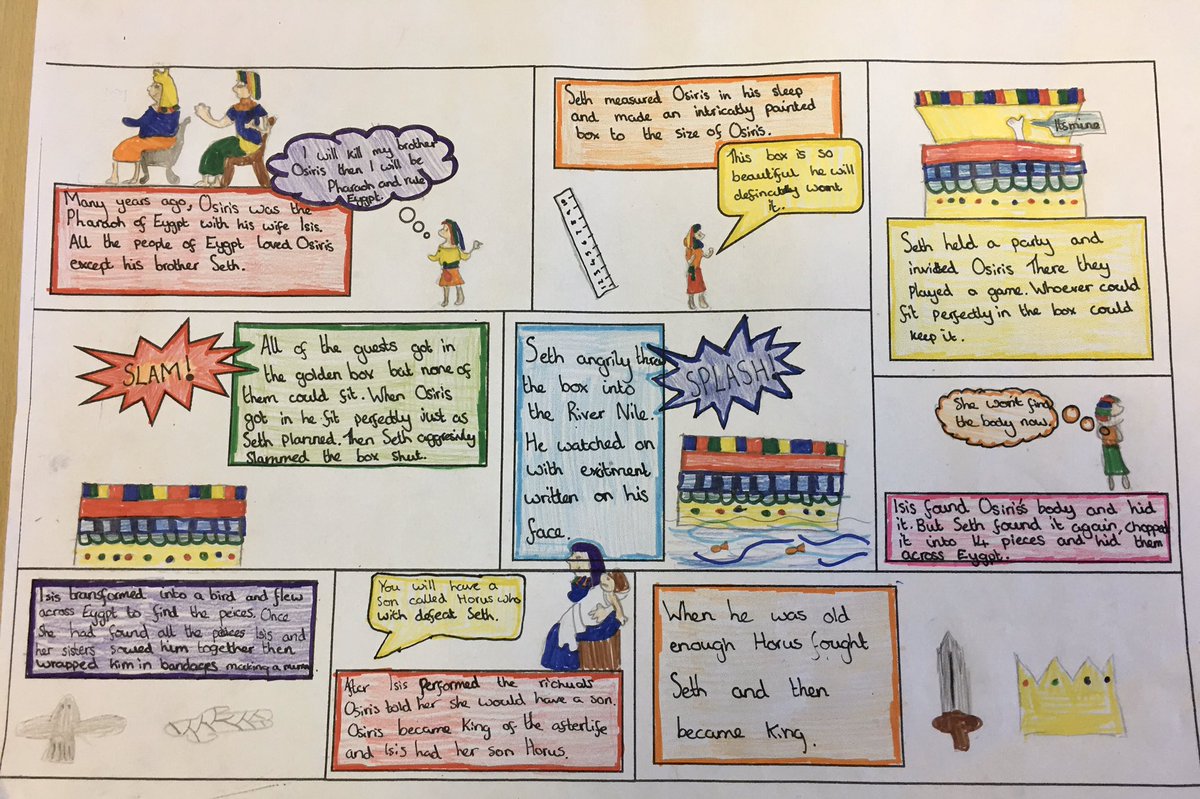 Many years ago, Osiris was the
Pharaoh of Eygpt with his wife Isis.
All the people of Eygpt loved Osiris
except his brother Seth.
I will kill my brother
Osiris then I will be
Pharaoh and rule
Eygpt.
Seth measured Osiris in his sleep
and made an intricatly painted
box to the size of Osiris.
This box is so
beautiful he will
definately want
it.
1 2 3 4 5 6 7 8 9
Its mine
Seth held a party and
invited Osiris There they
played a game. Whoever could
fit perfectly in the box could
keep it.
SLAM!
All of the guests got in
the golden box but none of
them could fit. When Osiris
got in he fit perfectly just as
Seth planned. Then Seth
slammed the box shut.
Seth angrily threw
the box into
the River Nile.
He watched on
with exitment
written on his
face.
SPLASH!
She won't find
the body now.
Isis found Osiris's body and hid
it. But Seth found it again, chopped
it into 14 pieces and hid them
across Eygpt.
Isis transformed into a bird and flew
across Eygpt to find the peices. Once
She had found all the peices Isis and
her sisters sowed him together then
wrapped him in bandages making a
You will have a
son called Horus who
with defeat Seth.
After Isis performed the richuals
Osiris told her she would have a son.
Osiris became King of the afterlife
and Isis had her son Horus.
When he was old
enough Horus fought
Seth and then
became King.